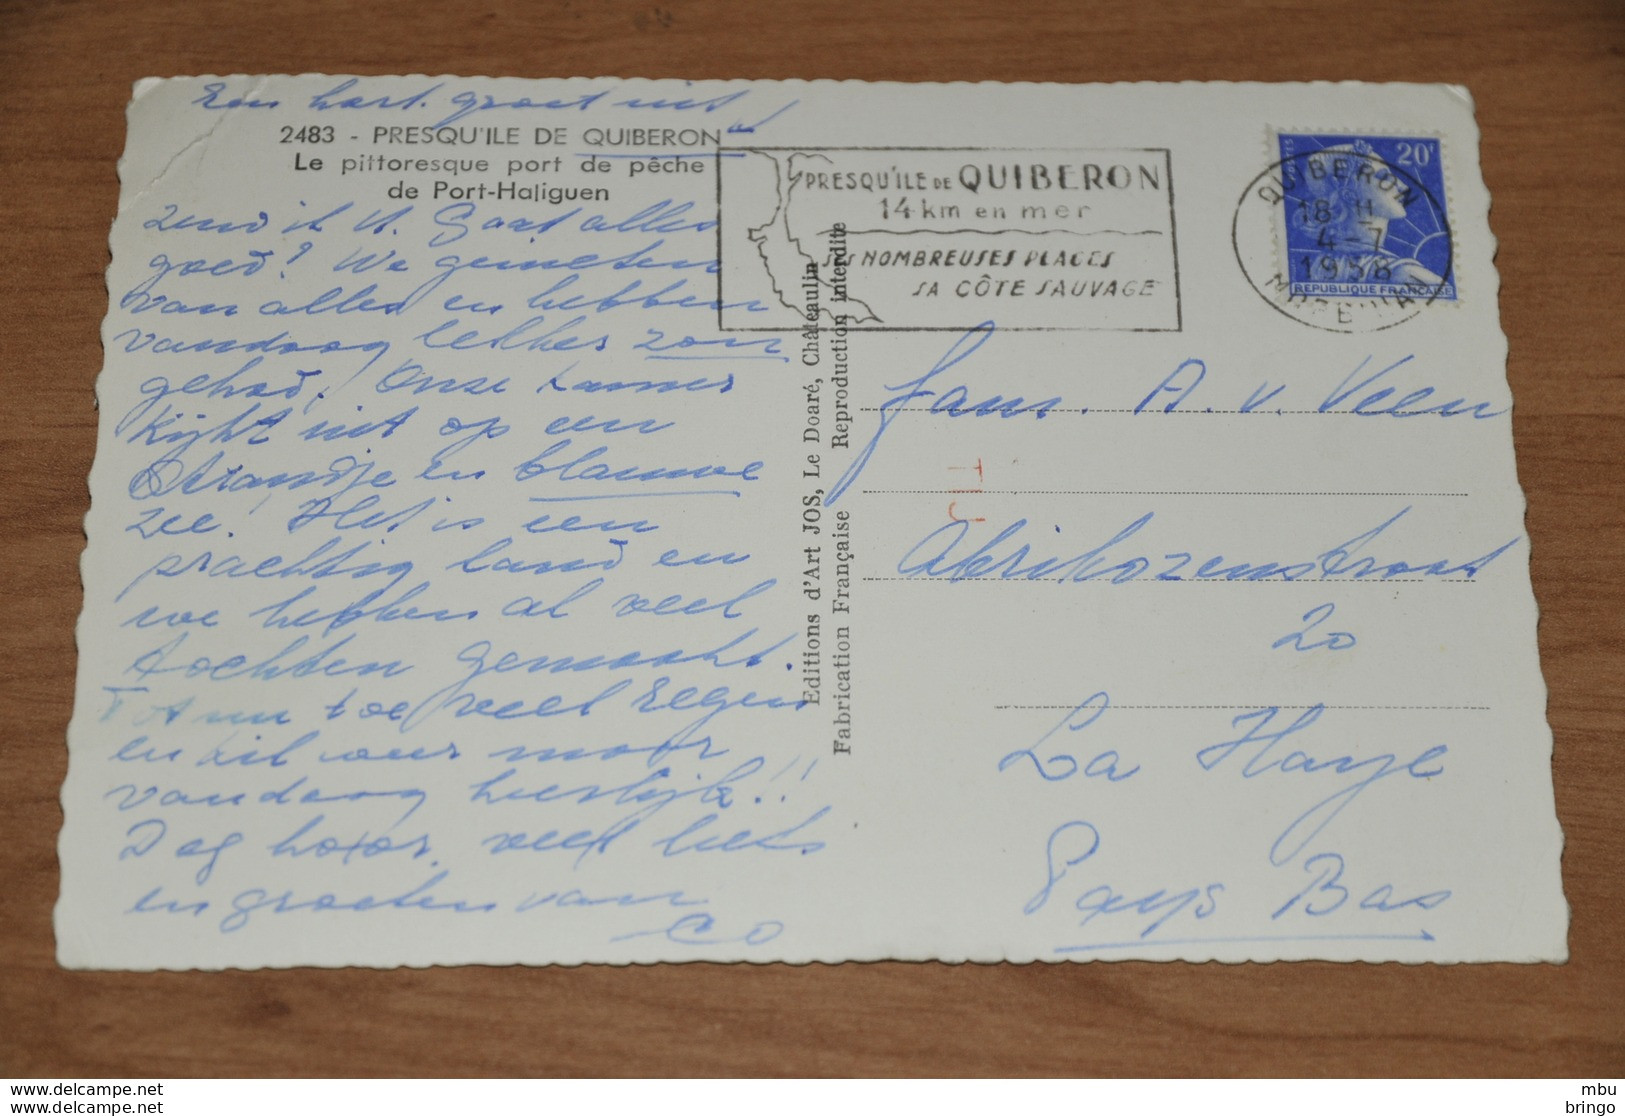 Een hart. groet uit
2483 - PRESQU'ILE DE QUIBERON
Le pittoresque port de pêche
de Port-Haliguen
zend ik U. Gaat alles
goed? We genieten
van alles en hebben
vandaag lekker zon
gehad. Onze kamer
kijkt uit op een
strandje en blauwe
zee! Het is een
prachtig land en
we hebben al veel
tochten gemaakt.
Tot nu toe veel regen
en kil weer maar
vandaag heerlijk!!
Dag hoor, veel liefs
en groeten van
Co
Editions d'Art JOS, Le Doaré, Châteaulin
Fabrication Française Reproduction interdite
PRESQU'ILE DE QUIBERON
14 km en mer
SES NOMBREUSES PLAGES
SA CÔTE SAUVAGE
POSTES
20F
REPUBLIQUE FRANÇAISE
QUIBERON
18 H
4-7
1958
MORBIHAN
Fam. A. v. Veen
Abrikozenstraat
20
La Haye
Pays Bas
www.delcampe.net
www.delcampe.net
mbu
bringo